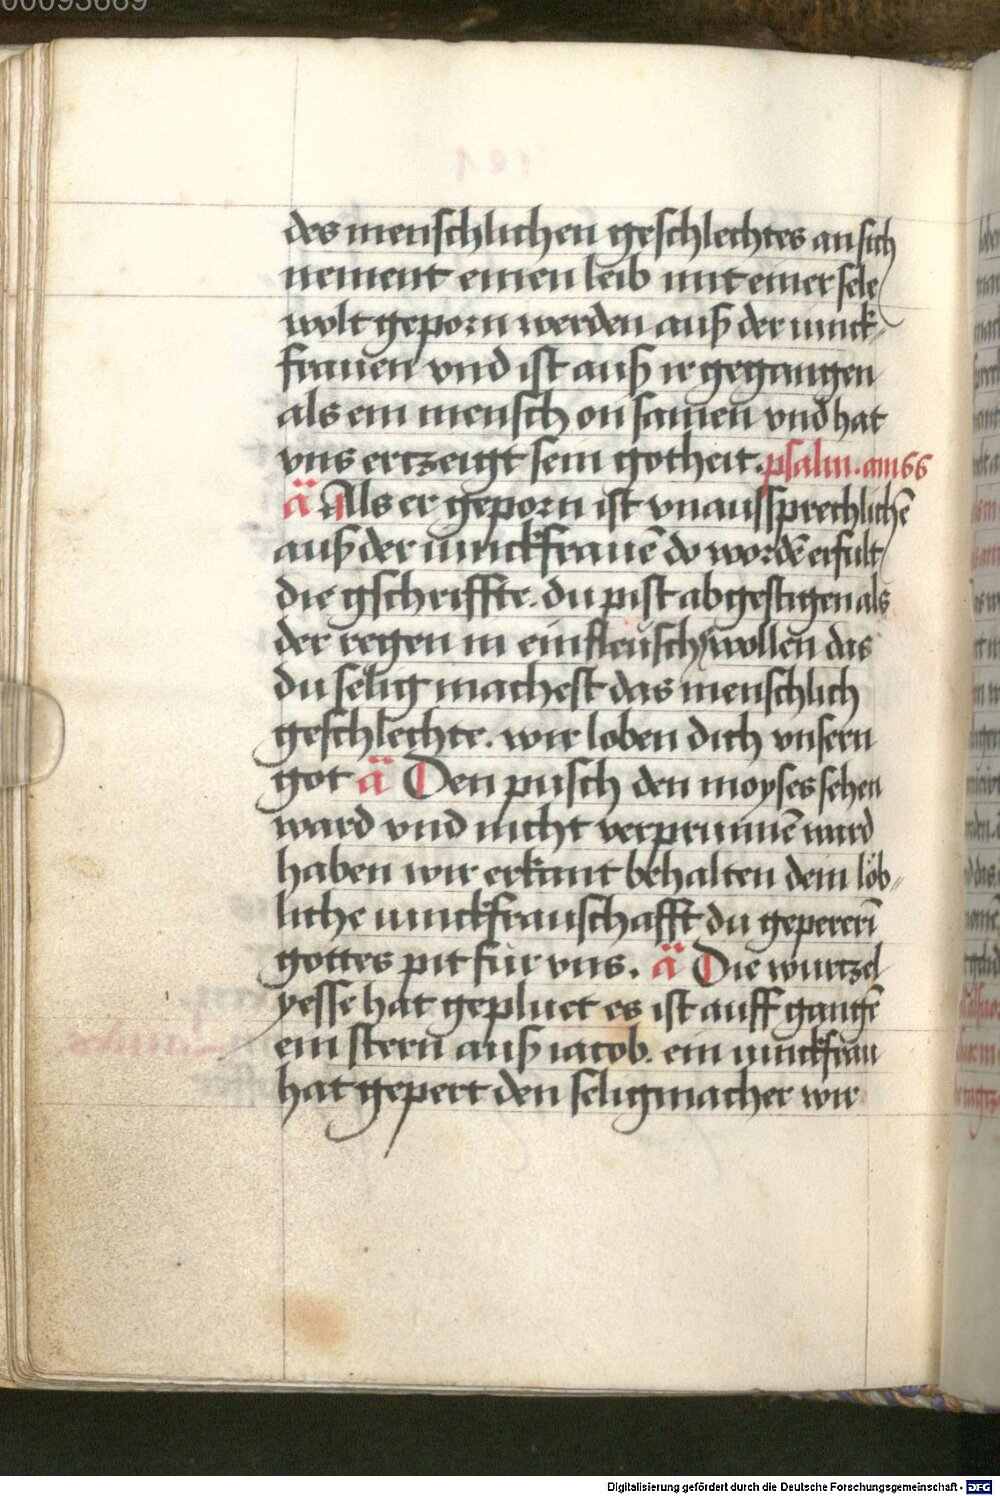 00093669
des menschlichen geschlechtes an sich
nement einen leib mit einer sele
wolt geporn werden auß der iunck-
frauen vnd ist auß ir gegangen
als ein mensch on samen vnd hat
vns ertzeigt sein gotheit. psalm. am 66
ä Als er geporn ist vnaussprechlichē
auß der iunckfrauē do wordē erfult
die gschriffte. du pist abgestigen als
der regen in ein fleusch wollen das
du selig machest das menschlich
geschlechte. wir loben dich vnsern
got ä Den pusch den moyses sehen
ward vnd nicht verprunnē ward
haben wir erkant behalten dein löb-
liche iunckfrauschafft du gepererī
gottes pit für vns. ä Die wurtzel
yesse hat gepluet es ist auff gangē
ein stern auß iacob. ein iunckfrau
hat gepert den seligmacher wir
Digitalisierung gefördert durch die Deutsche Forschungsgemeinschaft - DFG